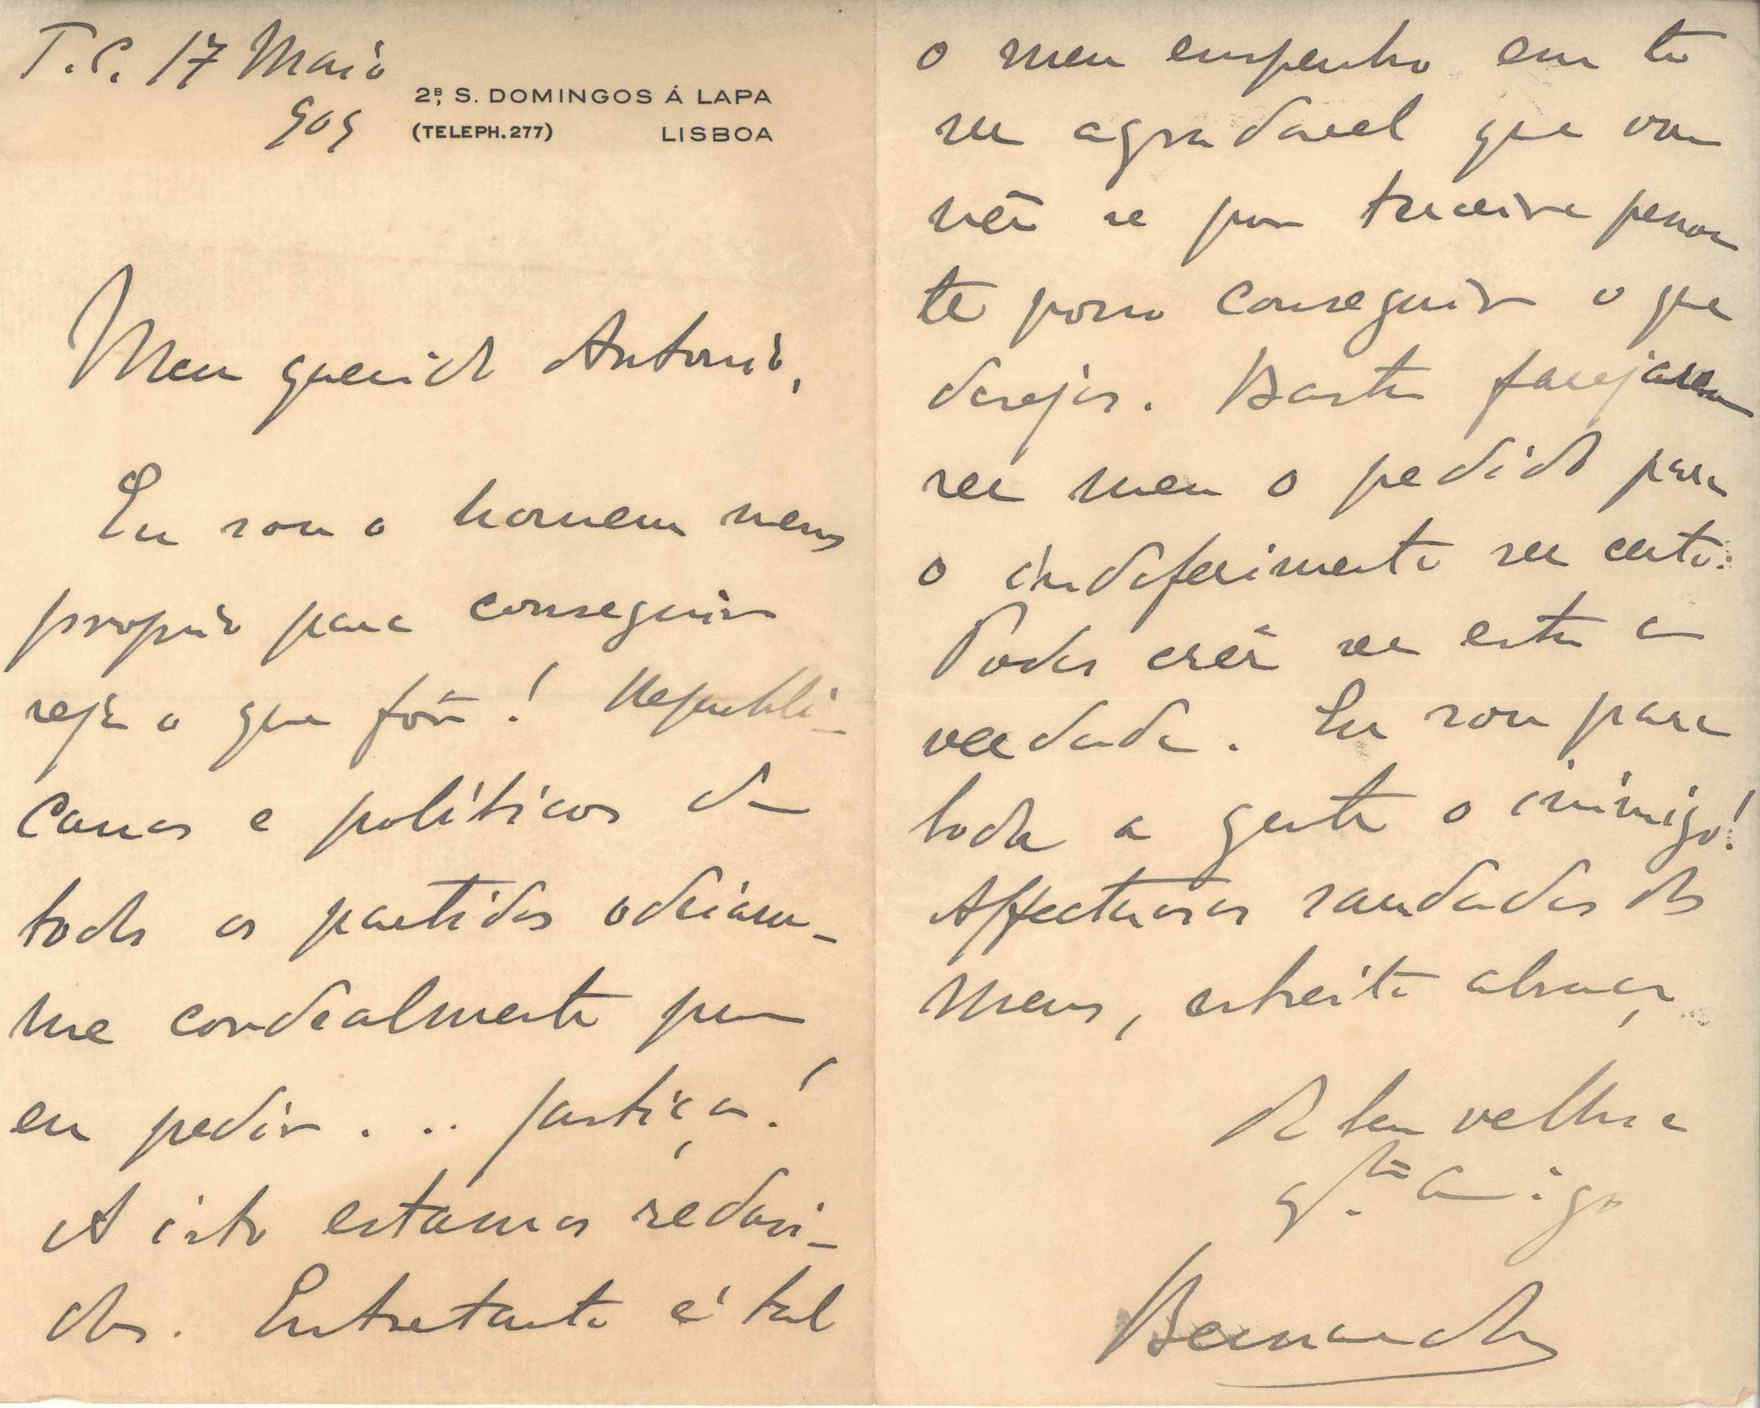 T.C. 17 Maio
909
2ª, S. DOMINGOS Á LAPA
(TELEPH. 277) LISBOA
Meu querido Antonio,
Eu sou o homem menos
proprio para conseguir
seja o que fôr! Republi-
canos e politicos de
todos os partidos odeiam-
me cordealmente por
eu pedir ... justiça!
A isto estamos redusi-
dos. Entretanto é tal
o meu empenho em te
ser agradavel que vou
vêr se por terceira pessoa
te posso conseguir o que
desejas. Basta farejarem
ser meu o pedido para
o indeferimento ser certo.
Podes crêr ser esta a
verdade. Eu sou para
toda a gente o inimigo!
Affectuosas saudades dos
meus, estreito abraço
Do teu velho e
g.to amigo
Bernardo